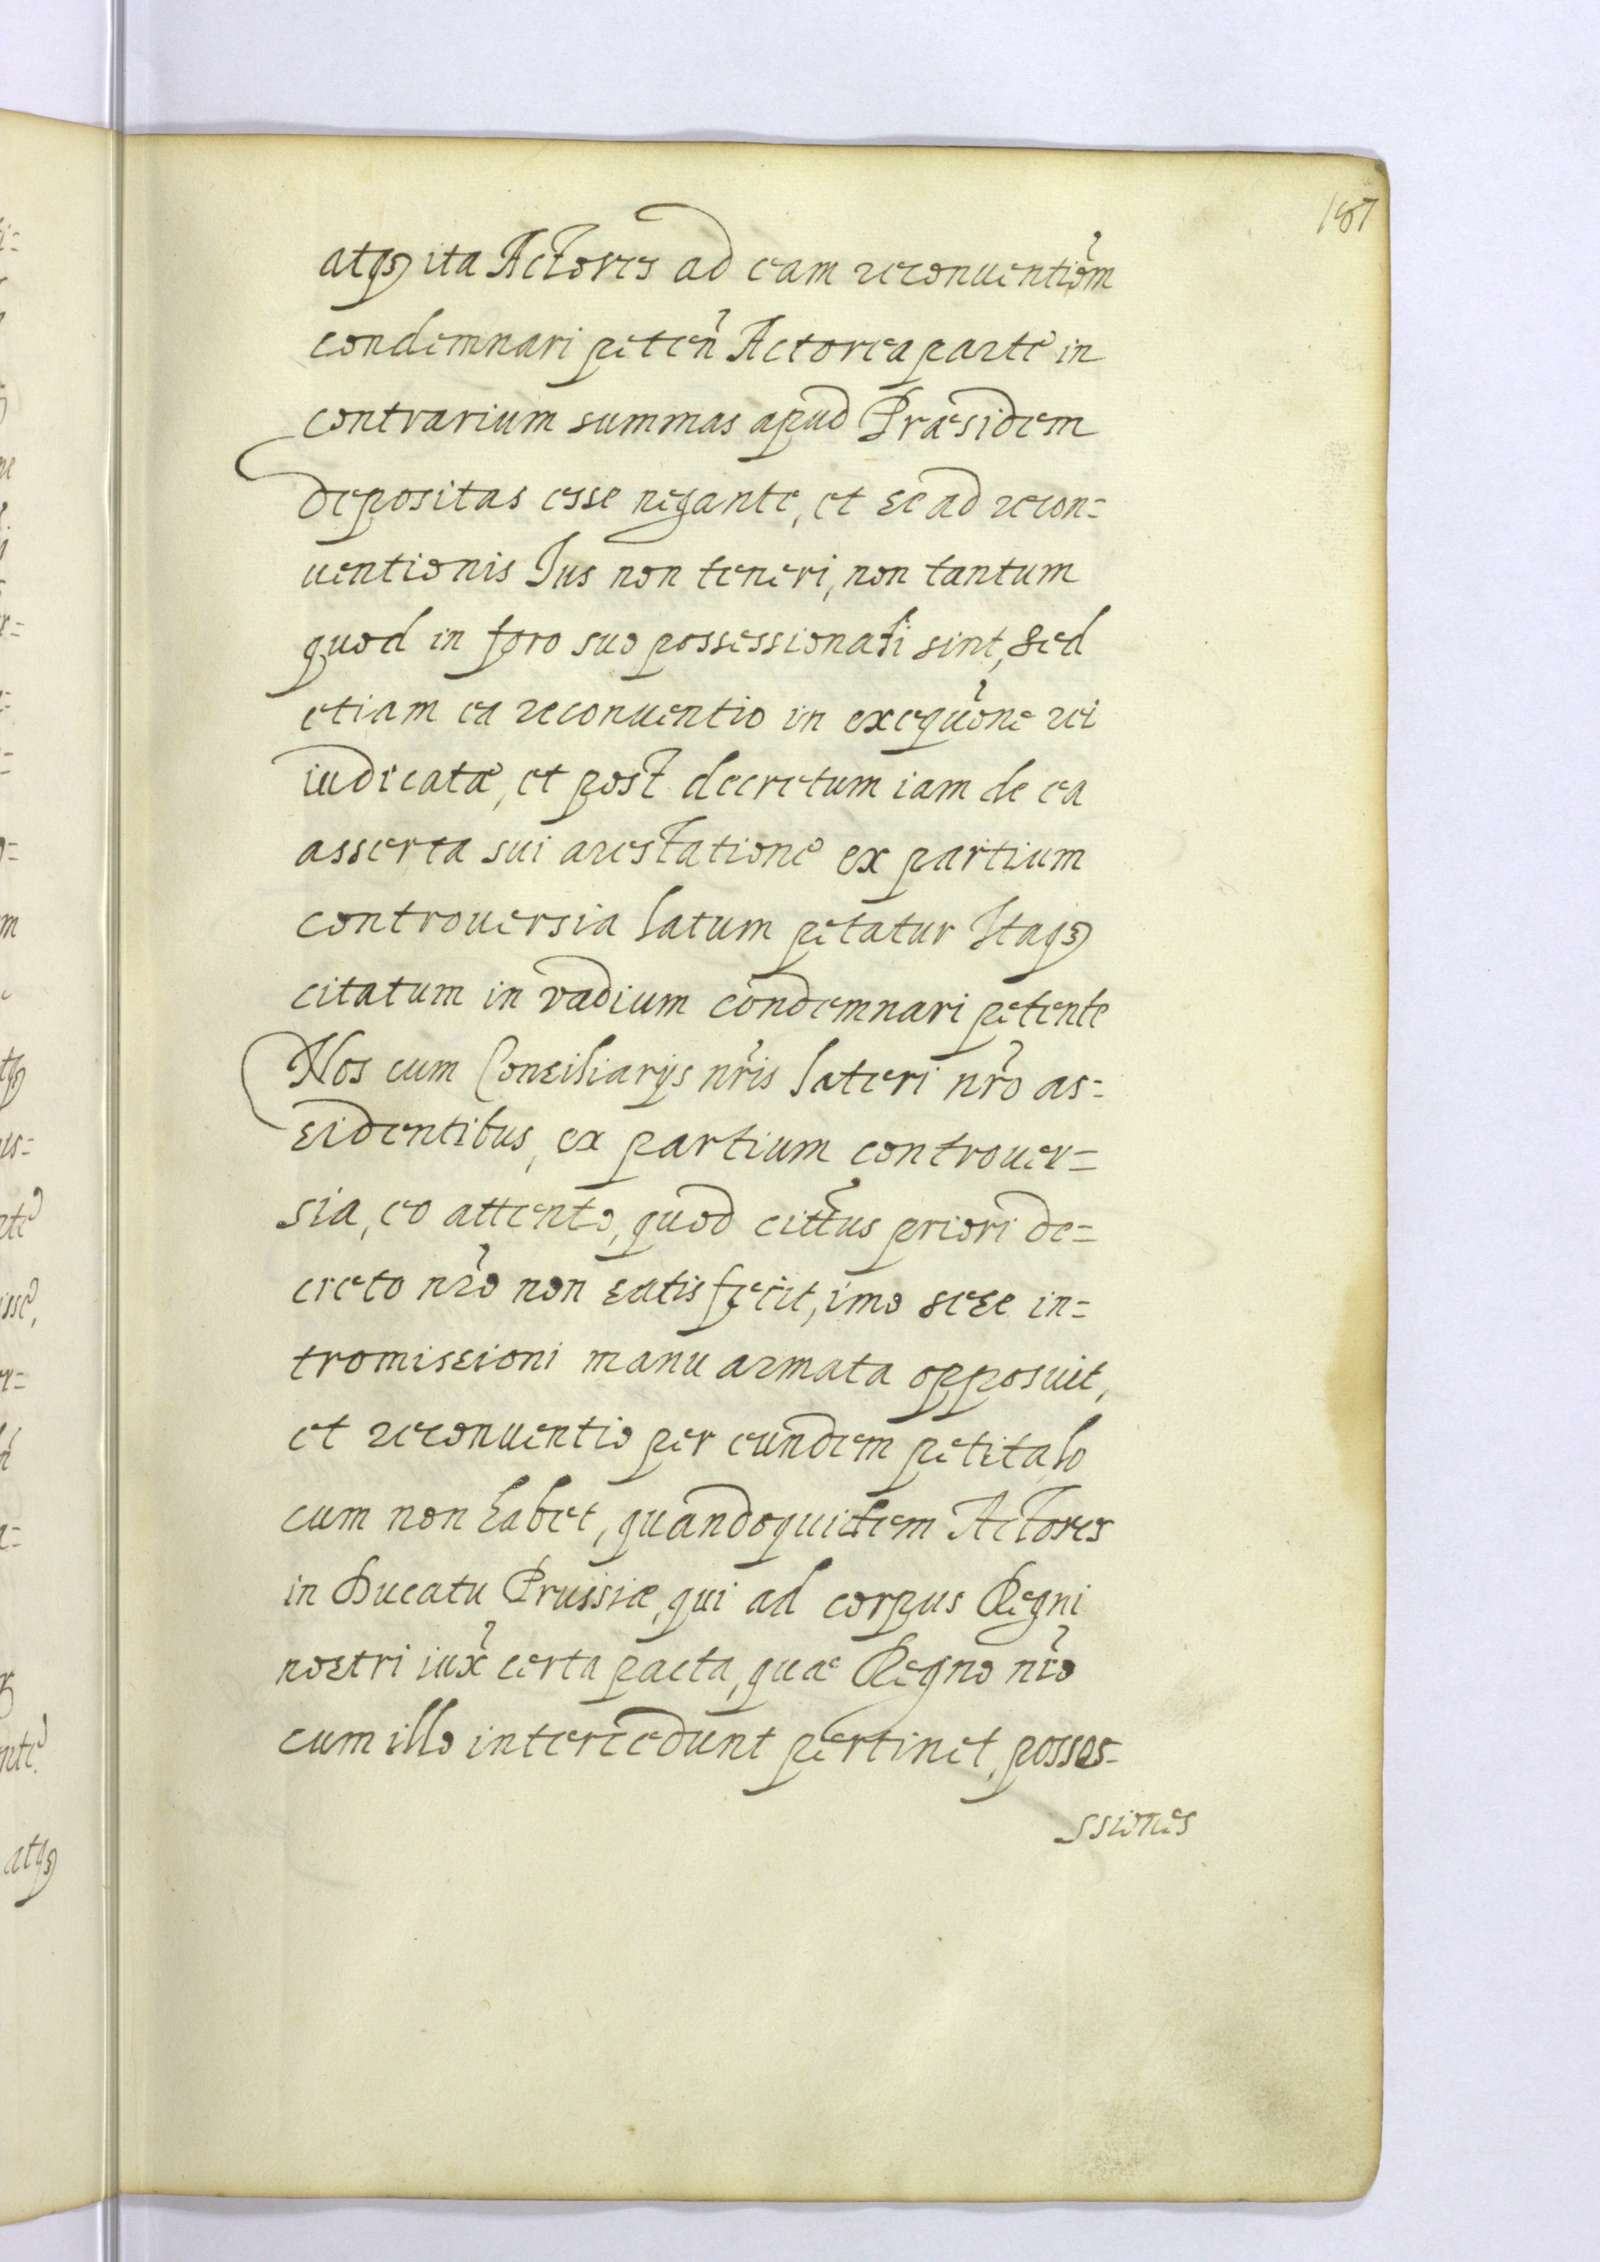 187
atq3 ita Actores ad eam reconuentiom̃
condemnari peteñ Actorea parte in
contrarium summas apud Præsidem
depositas esse negante, et se ad recon=
uentionis Jus non teneri, non tantum
quod in foro suo possessionati sint, sed
etiam ea reconuentio in exequũone rei
iudicatæ, et post decretum iam de ea
asserta sui arestatione ex partium
controuersia latum petatur Itaq3
citatum in vadium condemnari petente
Nos cum Consiliarijs nr̃is lateri nr̃o as=
sidentibus, ex partium controuer=
sia, eo attento, quod citt̃us priori de=
creto nr̃o non satisfecit, imo sese in=
tromissioni manu armata opposuit,
et reconuentio per eundem petita, lo
cum non habet, quandoquidem Actores
in Ducatu Prussiæ, qui ad corpus Regni
nostri iux̃ certa pacta, quae Regno nr̃o
cum illo intercedunt pertinet, posses=
ssiones